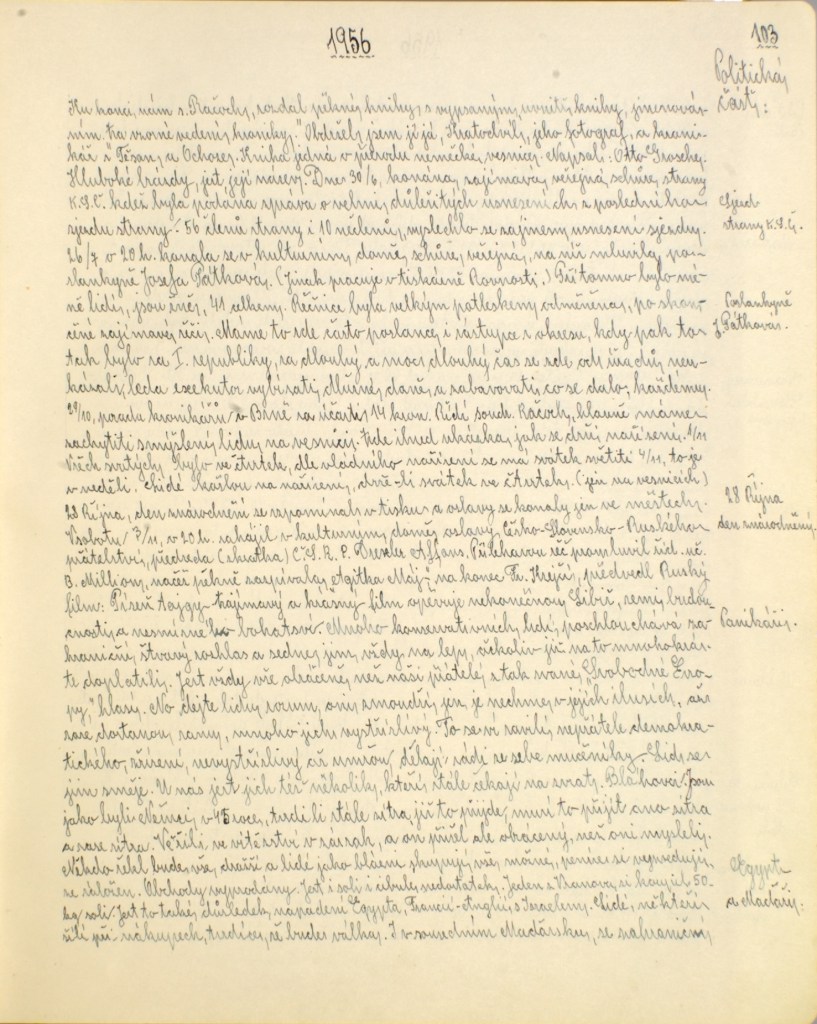 1956
103
Politická
část:
Ku konci nám s. Račoch, rozdal pěkné knihy, s vypsaným uvnitř knihy, jmenová-
ním "Za vzorné vedení kroniky." Obdržel jsem ji já, Kratochvíl, jeho fotograf, a kroni-
kář z Těšan, a Ochoz. Kniha jedná o původu německé vesnice. Napsal: Otto
Hluboké brázdy, jest její název. Dne 30/6, konána, zajímava, veřejná, schůze, strany
K.S.Č. kdež byla podána zpráva o velmi důležitých usneseních, z posledního
sjezdu strany. 56 členů strany i 10 nečlenů, vyslechlo se zájmem usnesení sjezdu.
Sjezd
strany K.S.Č.
26/7 v 20 h. konala se v kulturním domě, schůze, veřejná, na níž mluvila, po-
slankyně Josefa Pátková. (Jinak pracuje v tiskárně Rovnosti.) Přítomno bylo mé-
ně lidí, jsou žně, 41 celkem. Řečnice byla velkým potleskem odměněna, po skon-
Poslankyně
J. Pátková.
čené zajímavé řeči. Máme to zde často poslance i zástupce z okresu, kdy pak to
tak bylo za I. republiky, za dlouhý a moc dlouhý čas se zde od úřadů, neu-
kázali, leda exekutor vybírati, dlužné, daně, a zabavovati, co se dalo, každému.
29/10, porada kronikářů v Brně za účasti 14 kron. Řídí soudr. Račoch, hlavně máme
zachytiti smýšlení lidu, na vesnici. Zde ihned ukázka, jak se drží nařízení. 1/11
Všech svatých, bylo ve čtvrtek, dle vládního nařízení se má svátek světiti 4/11, to je
v neděli. Lidé kašlou na nařízení, drže-li svátek ve čtvrtek. (jen na vesnicích)
28 Října, den znárodnění se vzpomínal v tisku a oslavy se konaly jen ve městech.
28 Října
den znárodněný.
V sobotu 3/11, v 20 h. zahájil v kulturním domě, oslavy, Česko-Slovensko-Ruského
přátelství, předseda (skutka) Č.S.R.P. Drexler Alfons. Případnou řeč promluvil říd. uč.
B. Million, načež pěkně zazpívala, Agitka Máj, na konec Fr. Krejčí, předvedl Ruský
film: Píseň Tajgy. Zajímavý a krásný film opěvuje nekonečnou Sibiř, zemi budou-
cnosti, a nesmírného bohatsví. Mnoho konservativních, lidí, poschlouchává za-
Panikáři.
hraniční, štvavý rozhlas a sedne, jim vždy na lep, ačkoliv již na to mnohokrá-
te doplatili. Jest vždy vše obráceně, než naši přátelé, z tak zvané, "Svobodné Euro-
py," hlásí. No dejte lidu, rozum, oni zmoudří, jen je nechme v jejich ilusích, až
zase dostanou ránu, mnoho jich vystřízliví. To se ví zarilí, nepřátelé demokra-
tického, zřízení, nevystřízliví až umřou, dělají rádi ze sebe mučedníky. Lid, se
jim směje. U nás jest jich též několik, kteří, stále čekají na zvrat. Bláhoví. Jsou
jako byli Němci, v 45 roce, tvrdili stále zítra, již to přijde, musí to přijít, ano zítra
a zase zítra. Věřili ve vítězství v zázrak, a on přišel ale obráceně, než oni mysleli.
Někdo řekl bude, vše, dražší a lidé jako blázni skupují, vše, možné, peníze si vyzvedují,
ze záložen. Obchody vyprodány. Jest i soli i cibule nedostatek. Jeden z Vranova, si koupil 50
kg soli. Jest to také, důsledek, napadení Egypta, Francií-Anglií, s Israelem. Lidé, někteří
Egypt
a Maďaři.
šílí při nákupech, tvrdíce, že bude válka. I v sousedním Maďarsku, se zahraniční